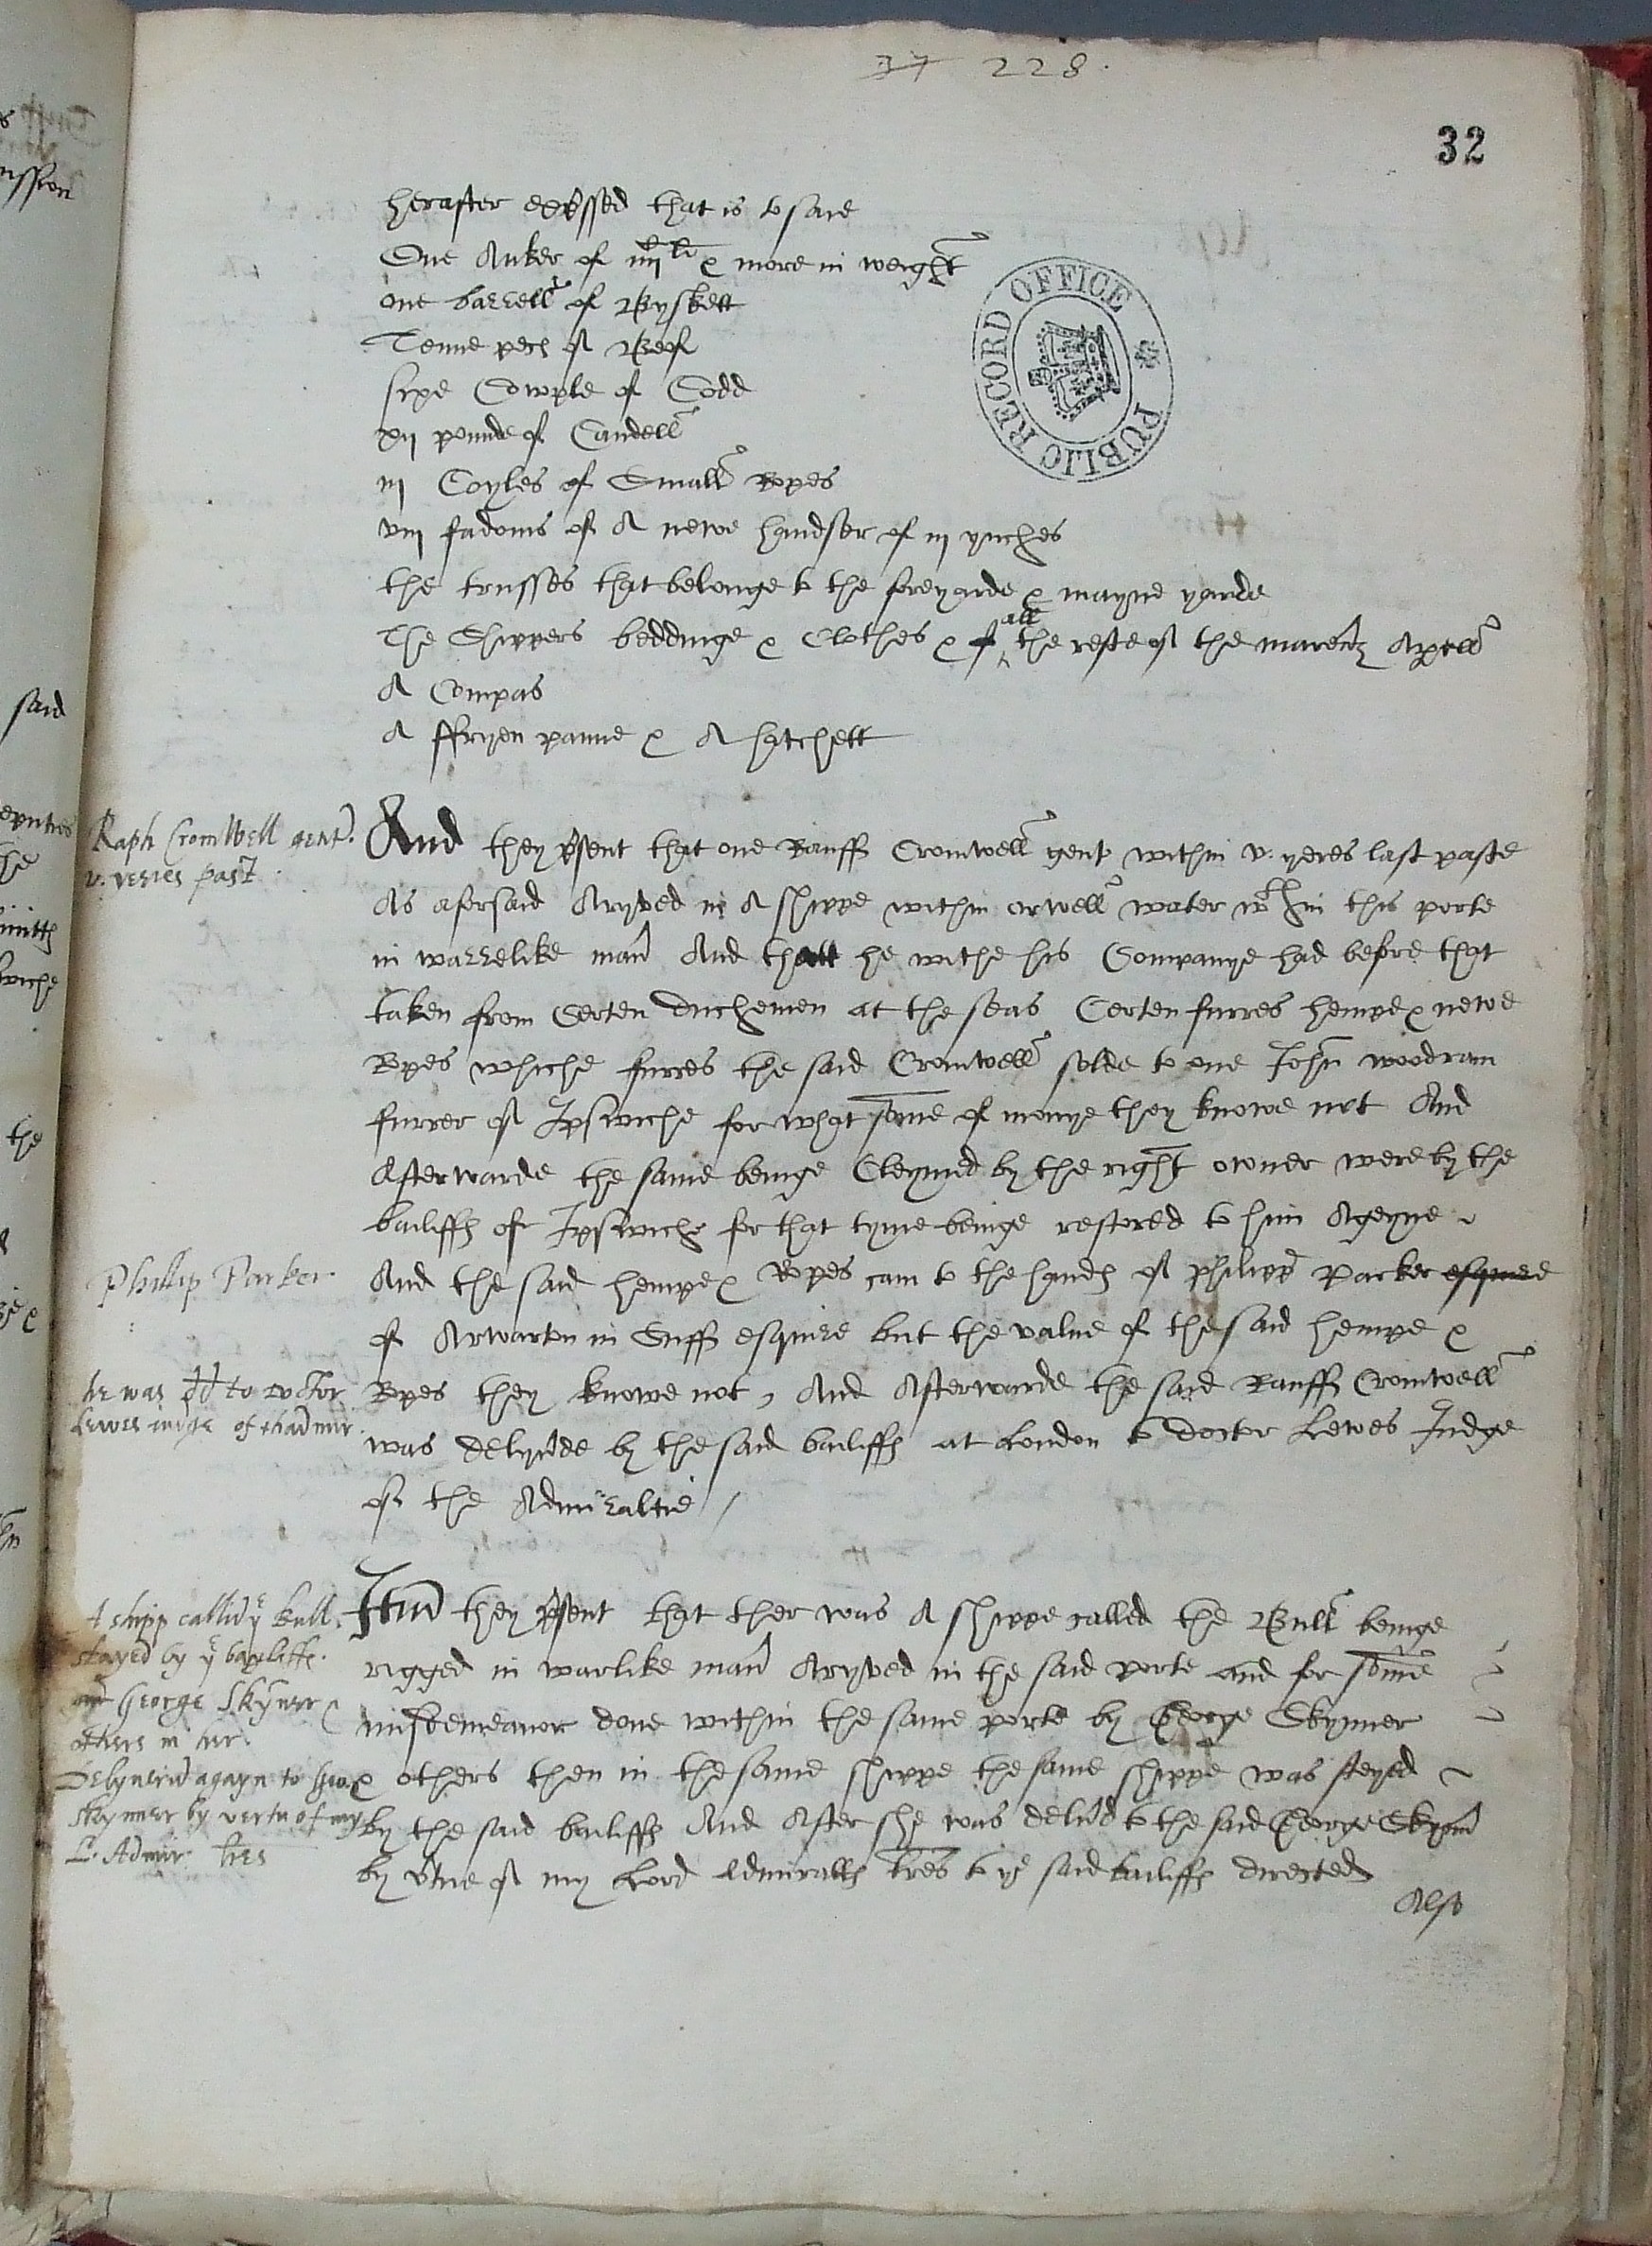 37 228.
32
herafter expssed that is to saie
One Anker of iiij li & more in weight
one barrell of Byskett
Tenne pecs of Beof
sixe Cowple of Codd
xij pounde of Candell
iij Coyles of Small Ropes
viij fadoms of A newe handser of iij ynches
the trusses that belonge to the foreyarde & mayne yarde
The Shippers beddinge & Clothes & of all the reste of the marenrz Aprell
A Compas
A ffryen panne & A hatchett
PUBLIC RECORD OFFICE
Raph Cromwell gent.
v. yeres past.
And they psent that one Rauff Cromwell gent within v. yeres last paste
As aforsaid Aryved in A shippe within orwell water wthin this porte
in warrelike man And thatt he withe his Companye had before that
taken from Certen duchemen at the seas Certen furres hempe & newe
Ropes whiche furres the said Cromwell solde to one John woodram
furrer of Ipswiche for what some of monye they knowe not And
Afterwarde the same beinge Cleymed by the right owner were by the
bailiffs of Ipswiche for that tyme beinge restored to him Ageyne
Phillip Parker.
And the said hempe & Ropes cam to the hands of philipp Parker esquire
of Arwarton in Suff esquire but the value of the said hempe &
he was dd to doctor
Lewes iudge of thadmir.
Ropes they knowe not, And Afterwarde the said Rauff Cromwell
was delyvde by the said bailiffs at London to doctor Lewes Judge
of the Admiraltie /
A shipp callid ye bull.
stayed by ye bayliffe.
and George Skyner &
others in her.
Delyverid agayn to Geo.
Skynner by vertu of my
L. Admir. lres
Itm they psent that ther was A shippe called the Bull beinge
rigged in warlike man Aryved in the said porte and for some
misdemeanor done within the same porte by George Skynner
& others then in the same shippe the same shippe was steyed
by the said bailiffs And After she was delivd to the said George Skynn
by vtue of my Lord Admiralls lres to ye said bailiffs directed
Also